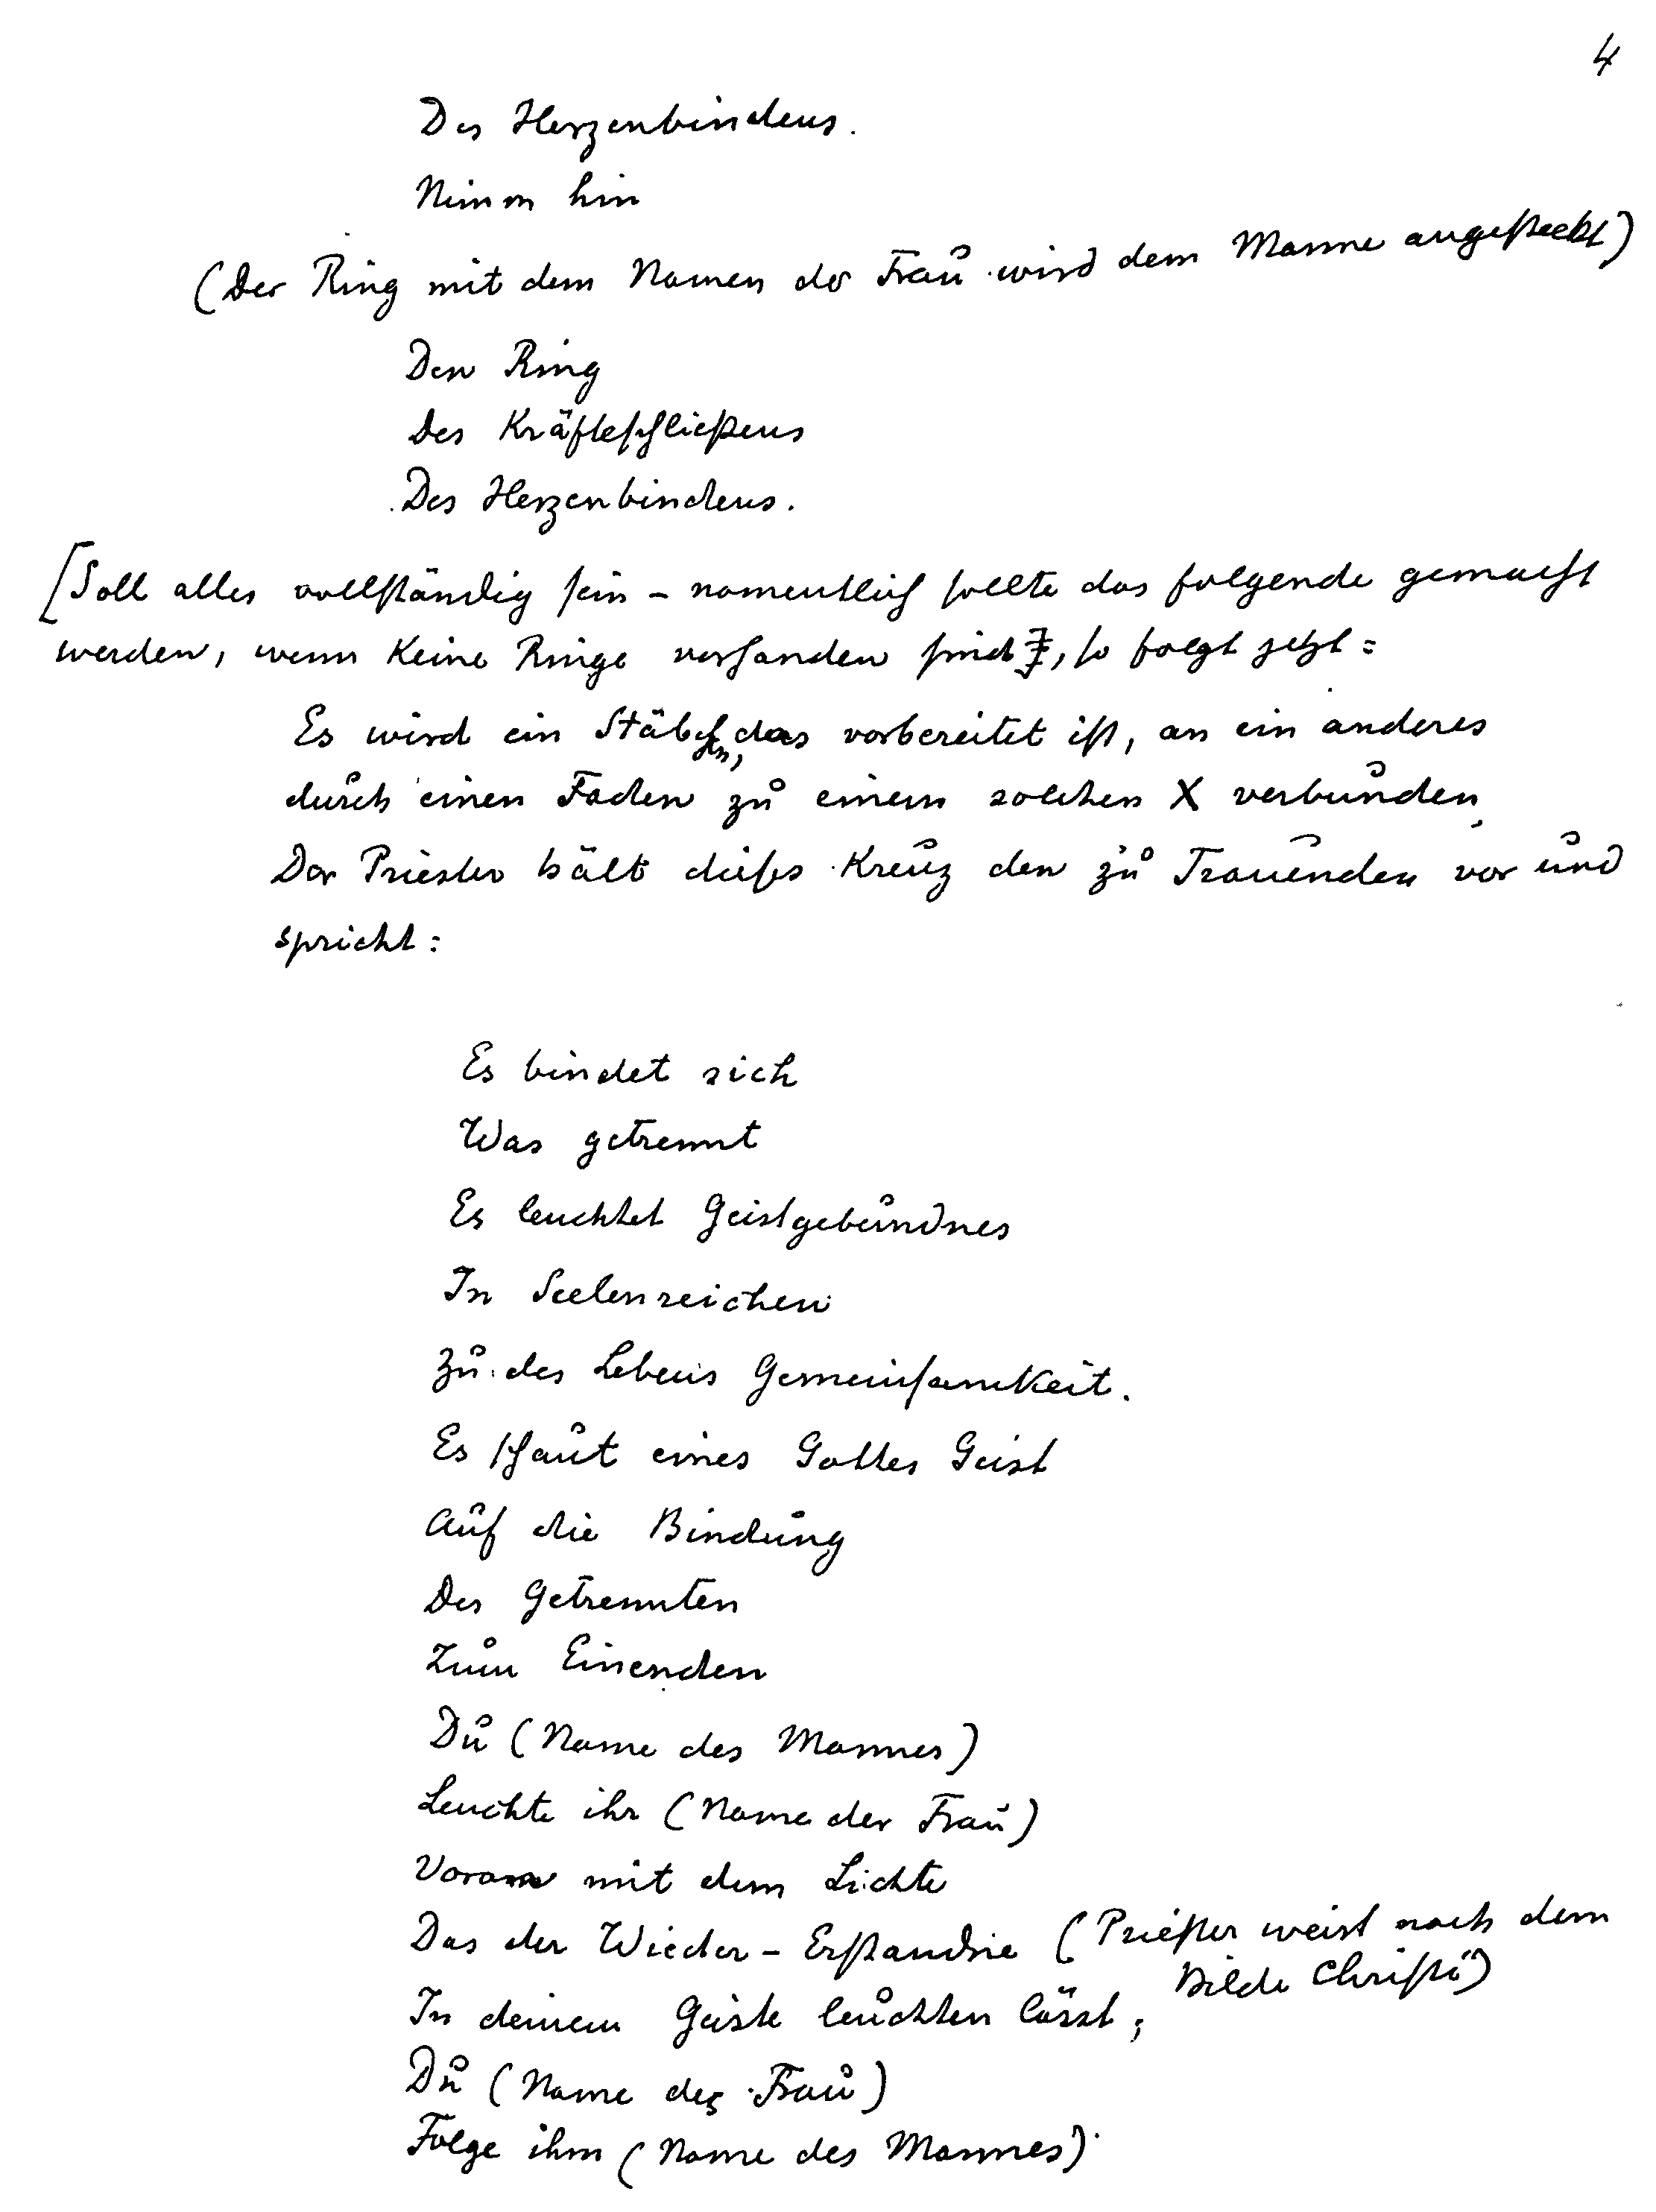 4
Des Herzenbindens.
Nimm hin
(Der Ring mit dem Namen der Frau wird dem Manne angesteckt)
Den Ring
Des Kräfteschließens
Des Herzenbindens.
[Soll alles vollständig sein – namentlich sollte das folgende gemacht
werden, wenn keine Ringe vorhanden sind, so folgt jetzt:
Es wird ein Stäbchen, das vorbereitet ist, an ein anderes
durch einen Faden zu einem solchen X verbunden.
Der Priester hält dieses Kreuz den zu Trauenden vor und
spricht:
Es bindet sich
Was getrennt
Es leuchtet Geistgebundnes
In Seelenreichen
Zu des Lebens Gemeinsamkeit.
Es schaut eines Gottes Geist
Auf die Bindung
Des Getrennten
Zum Einenden
Du (Name des Mannes)
Leuchte ihr (Name der Frau)
Voran mit dem Lichte
Das der Wieder-Erstandne (Priester weist nach dem
Bilde Christi)
In deinem Geiste leuchten lässt;
Du (Name der Frau)
Folge ihm (Name des Mannes)